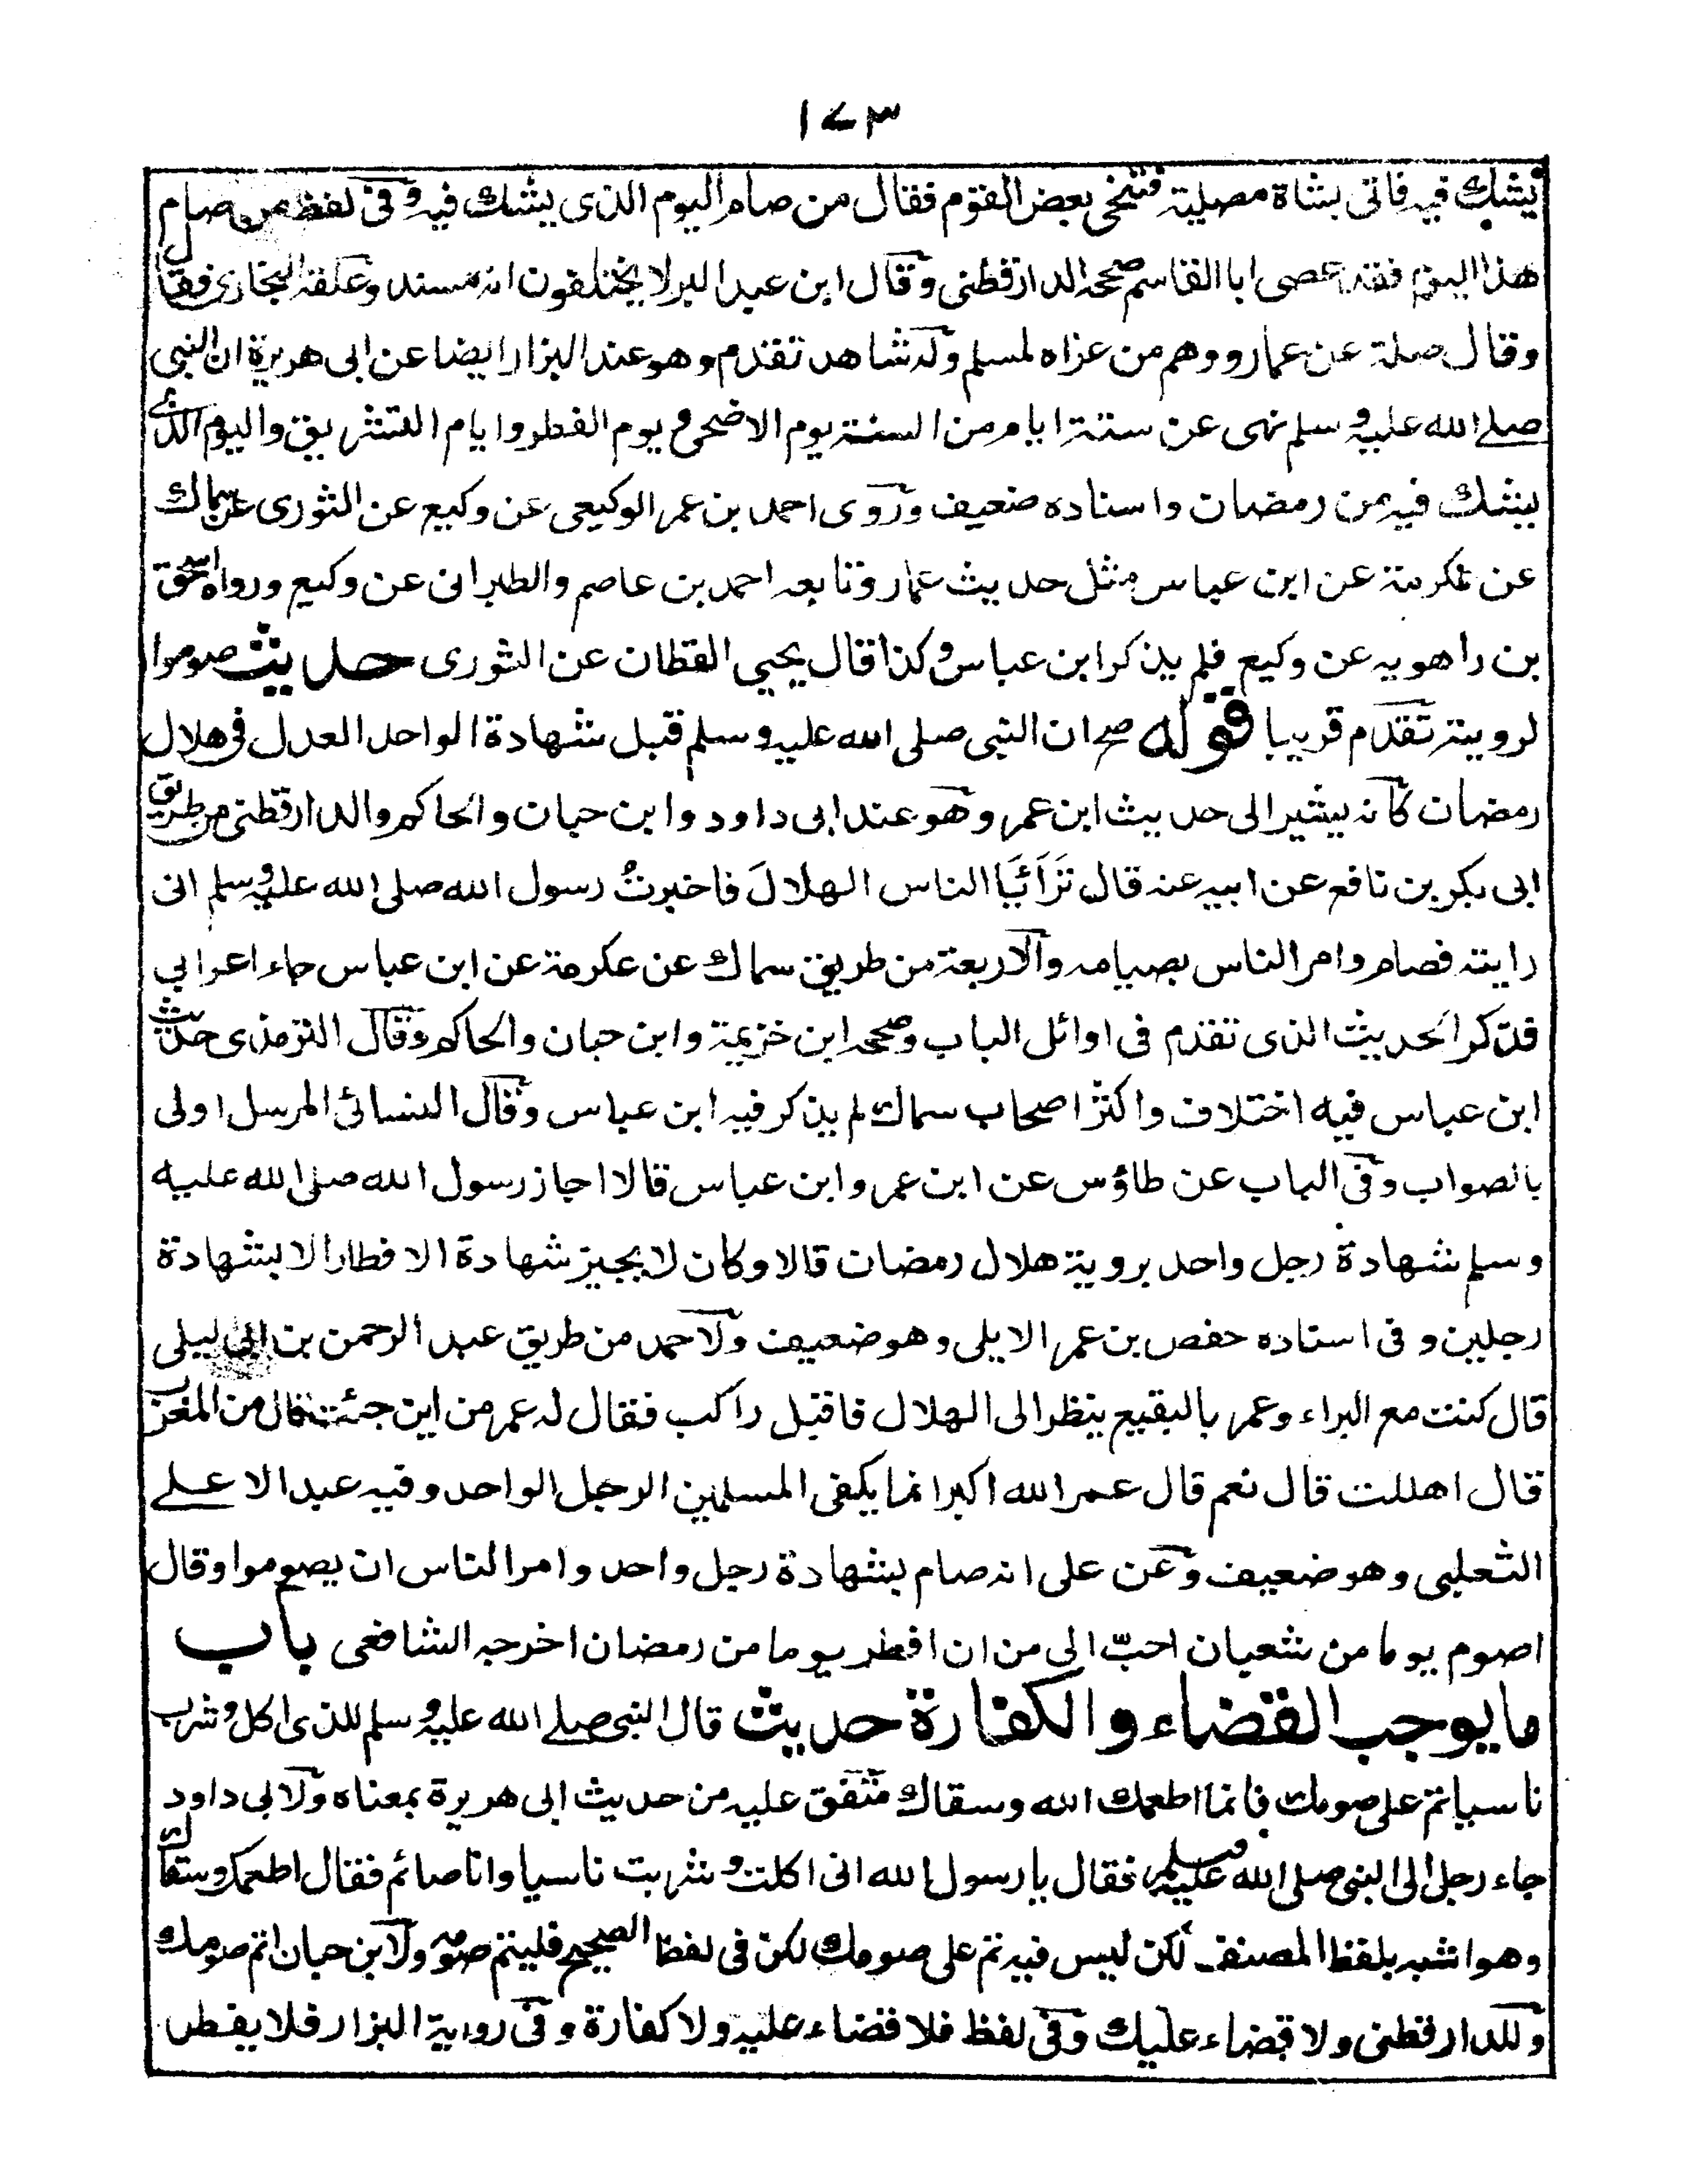 ١٧٣
يشك فيه فاتى بشاة مصلية فتنحى بعض القوم فقال من صام اليوم الذى يشك فيه وفى لفظ من صام
هذا اليوم فقد عصى ابا القاسم صححه الدارقطنى وقال ابن عبد البر لا يختلفون انه مسند وعلقه البخارى فقال
وقال صلة عن عمار ووهم من عزاه لمسلم وله شاهد تقدم وهو عند البزار ايضا عن ابى هريرة ان النبى
صلے الله عليه وسلم نهى عن ستة ايام من السنة يوم الاضحى ويوم الفطر وايام التشريق واليوم الذى
يشك فيه من رمضان واسناده ضعيف وروى احمد بن عمر الوكيعى عن وكيع عن الثورى عن سماك
عن عكرمة عن ابن عباس مثل حديث عمار وتابعه احمد بن عاصم والطبرانى عن وكيع ورواه اسحق
بن راهويه عن وكيع فلم يذكر ابن عباس وكذا قال يحيى القطان عن الثورى حديث صوموا
لرويته تقدم قريبا قوله صح ان النبى صلى الله عليه وسلم قبل شهادة الواحد العدل فى هلال
رمضان كانه يشير الى حديث ابن عمر وهو عند ابى داود وابن حبان والحاكم والدارقطنى من طريق
ابى بكر بن نافع عن ابيه عنه قال تَرَآئَيَا الناس الهلالَ فاخبرتُ رسول الله صلى الله عليه وسلم انى
رايته فصام وامر الناس بصيامه والاربعة من طريق سماك عن عكرمة عن ابن عباس جاء اعرابى
فذكر الحديث الذى تقدم فى اوائل الباب وصححه ابن خزيمة وابن حبان والحاكم وقال الترمذى حديث
ابن عباس فيه اختلاف واكثر اصحاب سماك لم يذكر فيه ابن عباس وقال النسائى المرسل اولى
بالصواب وفى الباب عن طاؤس عن ابن عمر وابن عباس قالا اجاز رسول الله صلى الله عليه
وسلم شهادة رجل واحد بروية هلال رمضان قالا وكان لا يجيز شهادة الافطار الا بشهادة
رجلين وفى اسناده حفص بن عمر الايلى وهو ضعيف ولاحمد من طريق عبد الرحمن بن ابى ليلى
قال كنت مع البراء وعمر بالبقيع ينظر الى الهلال فاقبل راكب فقال له عمر من اين جئت قال من المغرب
قال اهللت قال نعم قال عمر الله اكبر انما يكفى المسلمين الرجل الواحد وفيه عبد الا علے
الثعلبى وهو ضعيف وعن على انه صام بشهادة رجل واحد وامر الناس ان يصوموا وقال
اصوم يوما من شعبان احبّ الى من ان افطر يوما من رمضان اخرجه الشافعى باب
ما يوجب القضاء والكفارة حديث قال النبى صلے الله عليه وسلم للذى اكل وشرب
ناسيا تم على صومك فانما اطعمك الله وسقاك متفق عليه من حديث ابى هريرة بمعناه ولابى داود
جاء رجل الى النبى صلى الله عليه وسلم فقال يا رسول الله انى اكلت وشربت ناسيا وانا صائم فقال اطعمك وسقاك
وهو اشبه بلفظ المصنف لكن ليس فيه تم على صومك لكن فى لفظ الصحيح فليتم صومه ولابن حبان اتم صومك
وللدارقطنى ولا قضاء عليك وفى لفظ فلا قضاء عليه ولا كفارة وفى رواية البزار فلا يفطر